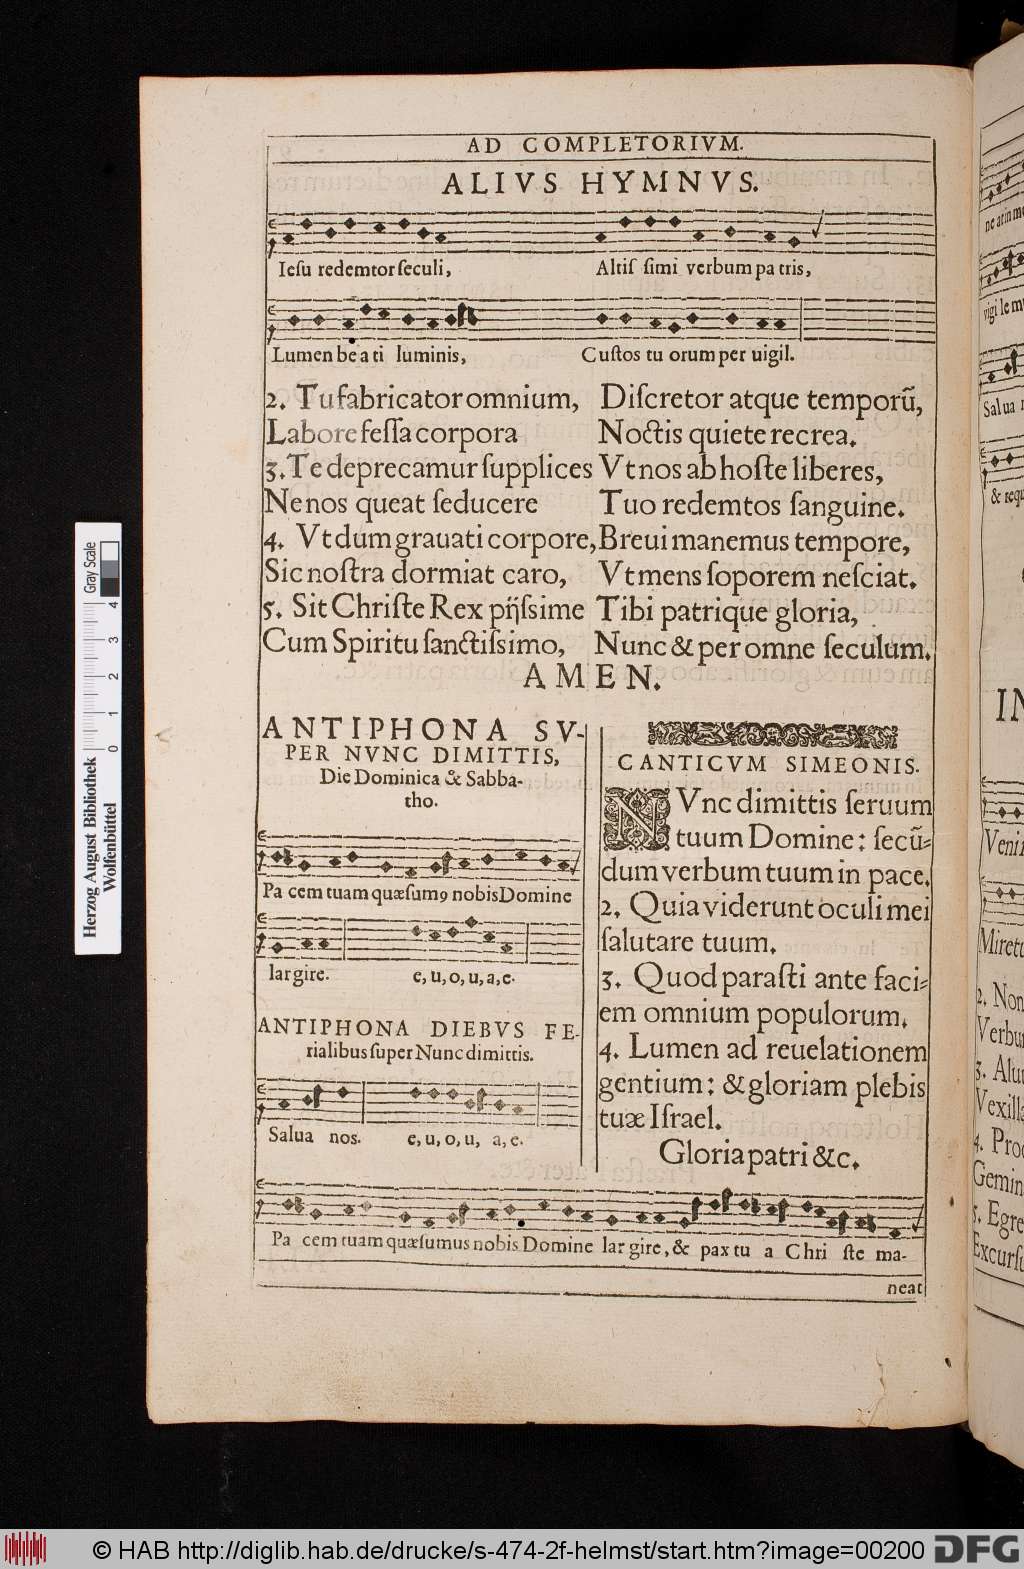 AD COMPLETORIVM.
ALIVS HYMNVS.
Ieſu redemtor ſeculi, Altiſ ſimi verbum pa tris,
Lumen be a ti luminis, Cuſtos tu orum per uigil.
2. Tu fabricator omnium, Diſcretor atque temporũ,
Labore feſſa corpora Noctis quiete recrea.
3. Te deprecamur ſupplices Vt nos ab hoſte liberes,
Ne nos queat ſeducere Tuo redemtos ſanguine.
4. Vt dum grauati corpore, Breui manemus tempore,
Sic noſtra dormiat caro, Vt mens ſoporem neſciat.
5. Sit Chriſte Rex pijſsime Tibi patrique gloria,
Cum Spiritu ſanctiſsimo, Nunc & per omne ſeculum.
AMEN.
ANTIPHONA SV-
PER NVNC DIMITTIS,
Die Dominica & Sabba-
tho.
Pa cem tuam quæſumꝰ nobis Domine
lar gire. e, u, o, u, a, e.
ANTIPHONA DIEBVS FE-
rialibus ſuper Nunc dimittis.
Salua nos. e, u, o, u, a, e.
CANTICVM SIMEONIS.
NVnc dimittis ſeruum
tuum Domine: ſecũ-
dum verbum tuum in pace.
2. Quia viderunt oculi mei
ſalutare tuum.
3. Quod paraſti ante faci-
em omnium populorum.
4. Lumen ad reuelationem
gentium: & gloriam plebis
tuæ Iſrael.
Gloria patri &c.
Pa cem tuam quæſumus nobis Domine lar gire, & pax tu a Chri ſte ma-
neat
ne at in me
vigi le m
Salua
& requ
IN
Veni
Miret
2. Non
Verbu
3. Alu
Vexill
4. Proc
Gemin
5. Egre
Excurſu
Herzog August Bibliothek
Wolfenbüttel
0 1 2 3 4 Gray Scale
© HAB http://diglib.hab.de/drucke/s-474-2f-helmst/start.htm?image=00200 DFG